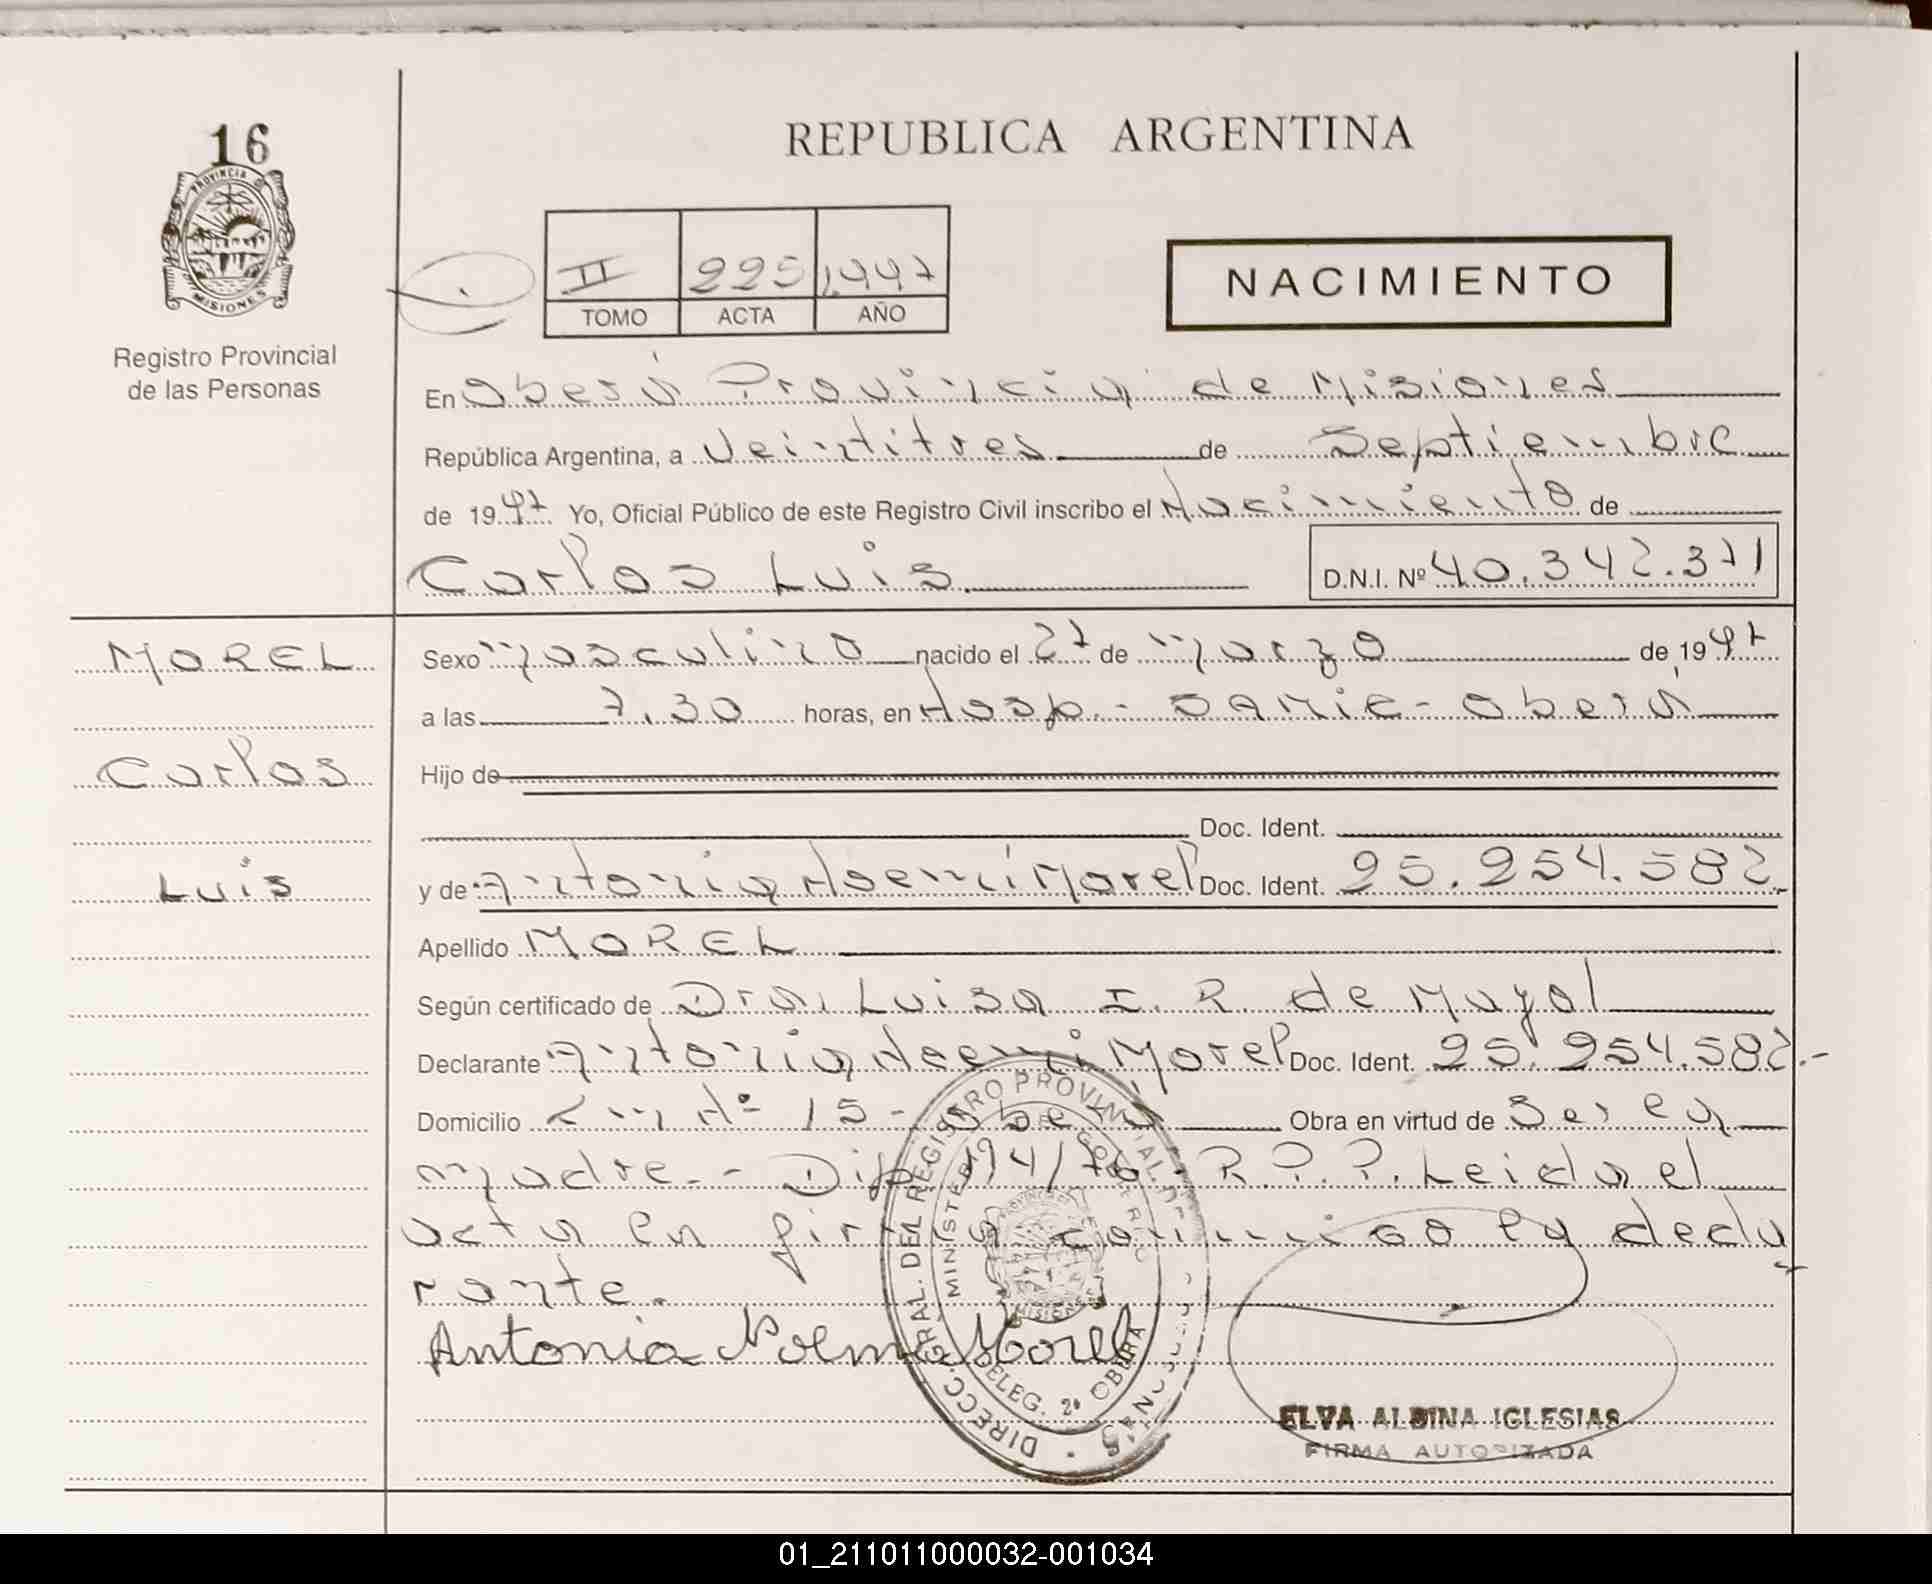 16
PROVINCIA D
MISIONES
Registro Provincial
de las Personas
REPUBLICA ARGENTINA
II 225 1.997
TOMO ACTA AÑO
NACIMIENTO
En Oberá Provincia de Misiones
República Argentina, a Veintitres de Septiembre
de 1997 Yo, Oficial Público de este Registro Civil inscribo el Nacimiento de
Carlos Luis
D.N.I. Nº 40.342.371
MOREL
Carlos
Luis
Sexo masculino nacido el 27 de marzo de 1997
a las 7.30 horas, en Hosp.- SAMIC - Oberá
Hijo de
Doc. Ident.
y de Antonia Noemi Morel Doc. Ident. 25.254.582
Apellido MOREL
Según certificado de Dra. Luisa I. R. de Mayol
Declarante Antonia Noemi Morel Doc. Ident. 25.254.582.-
Domicilio Km Nº 15 - Oberá Obra en virtud de Ser la
madre.- Disp 194/76. R.P.P. Leida el
acta la firma conmigo la decla
rante.
Antonia Noemi Morel
DIRECC. GRAL. DEL REGISTRO PROVINCIAL DE
MINISTERIO DE GOBIERNO
MISIONES
DELEG. 2ª OBERA
ELVA ALBINA IGLESIAS
FIRMA AUTORIZADA
01_211011000032-001034